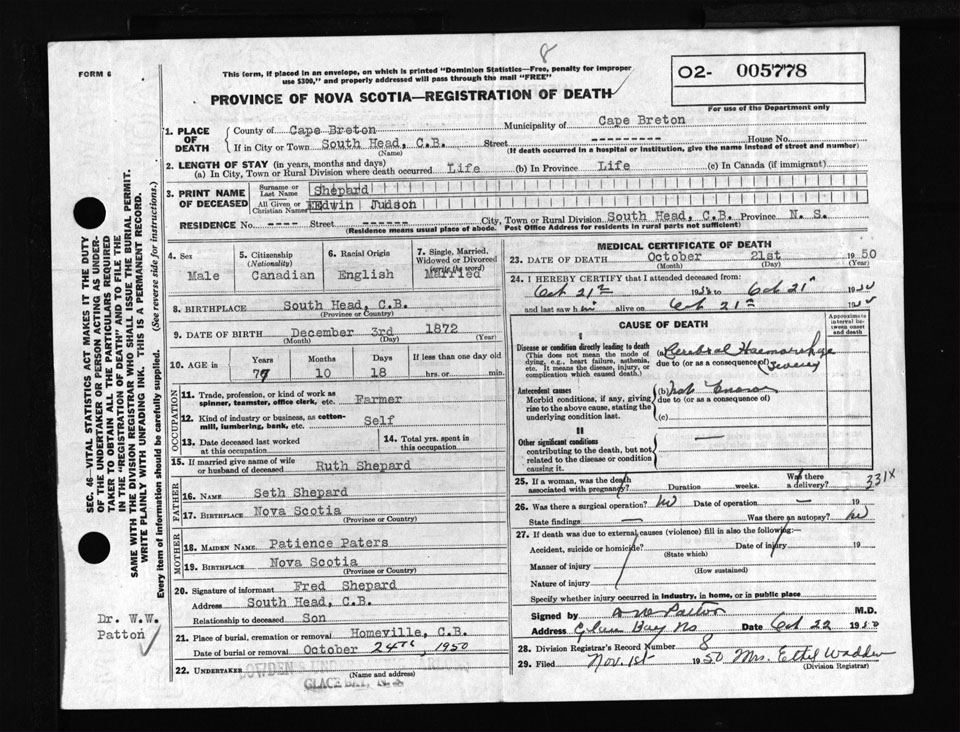 8
FORM 6
This form, if placed in an envelope, on which is printed "Dominion Statistics—Free, penalty for improper
use $300," and properly addressed will pass through the mail "FREE"
PROVINCE OF NOVA SCOTIA—REGISTRATION OF DEATH
02- 005778
For use of the Department only
1. PLACE OF DEATH
County of Cape Breton Municipality of Cape Breton
If in City or Town South Head, C.B. Street House No.
(Name) (If death occurred in a hospital or institution, give the name instead of street and number)
2. LENGTH OF STAY (in years, months and days)
(a) In City, Town or Rural Division where death occurred Life (b) In Province Life (c) In Canada (if immigrant)
3. PRINT NAME OF DECEASED
Surname or Last Name Shepard
All Given or Christian Names Edwin Judson
RESIDENCE No. ---- Street ------ City, Town or Rural Division South Head, C.B. Province N. S.
(Residence means usual place of abode. Post Office Address for residents in rural parts not sufficient)
4. Sex Male
5. Citizenship (Nationality) Canadian
6. Racial Origin English
7. Single, Married, Widowed or Divorced (write the word) Married
8. BIRTHPLACE South Head, C.B.
(Province or Country)
9. DATE OF BIRTH December 3rd 1872
(Month) (Day) (Year)
10. AGE in Years Months Days If less than one day old
77 10 18 hrs. or min.
OCCUPATION
11. Trade, profession, or kind of work as spinner, teamster, office clerk, etc. Farmer
12. Kind of industry or business, as cotton-mill, lumbering, bank, etc. Self
13. Date deceased last worked at this occupation
14. Total yrs. spent in this occupation
15. If married give name of wife or husband of deceased Ruth Shepard
FATHER
16. NAME Seth Shepard
17. BIRTHPLACE Nova Scotia
(Province or Country)
MOTHER
18. MAIDEN NAME Patience Paters
19. BIRTHPLACE Nova Scotia
(Province or Country)
20. Signature of informant Fred Shepard
Address South Head, C.B.
Relationship to deceased Son
21. Place of burial, cremation or removal Homeville, C.B.
Date of burial or removal October 24th, 1950
22. UNDERTAKER
GLACE BAY, N.S.
(Name and address)
MEDICAL CERTIFICATE OF DEATH
23. DATE OF DEATH October 21st 1950
(Month) (Day) (Year)
24. I HEREBY CERTIFY that I attended deceased from:
Oct 21st 1950 to Oct 21st 1950
and last saw him alive on Oct 21st 1950
CAUSE OF DEATH
Approximate interval between onset and death
I
Disease or condition directly leading to death
(This does not mean the mode of dying, e.g., heart failure, asthenia, etc. It means the disease, injury, or complication which caused death.)
(a) Cerebral Haemorrhage
due to (or as a consequence of)
Antecedent causes
Morbid conditions, if any, giving rise to the above cause, stating the underlying condition last.
(b) not known
due to (or as a consequence of)
(c)
II
Other significant conditions
contributing to the death, but not related to the disease or condition causing it.
25. If a woman, was the death associated with pregnancy? Duration weeks. Was there a delivery?
331X
26. Was there a surgical operation? No Date of operation 19
State findings Was there an autopsy? No
27. If death was due to external causes (violence) fill in also the following:—
Accident, suicide or homicide? Date of injury 19
(State which)
Manner of injury
(How sustained)
Nature of injury
Specify whether injury occurred in industry, in home, or in public place
Signed by Patton M.D.
Address Glace Bay NS Date Oct 22 1950
28. Division Registrar's Record Number 8
29. Filed Nov. 1st 1950 Mrs. Ethel
(Division Registrar)
SEC. 46—VITAL STATISTICS ACT MAKES IT THE DUTY
OF THE UNDERTAKER OR PERSON ACTING AS UNDER-
TAKER TO OBTAIN ALL THE PARTICULARS REQUIRED
IN THE "REGISTRATION OF DEATH" AND TO FILE THE
SAME WITH THE DIVISION REGISTRAR WHO SHALL ISSUE THE BURIAL PERMIT.
WRITE PLAINLY WITH UNFADING INK. THIS IS A PERMANENT RECORD.
Every item of information should be carefully supplied. (See reverse side for instructions.)
Dr. W.W.
Patton